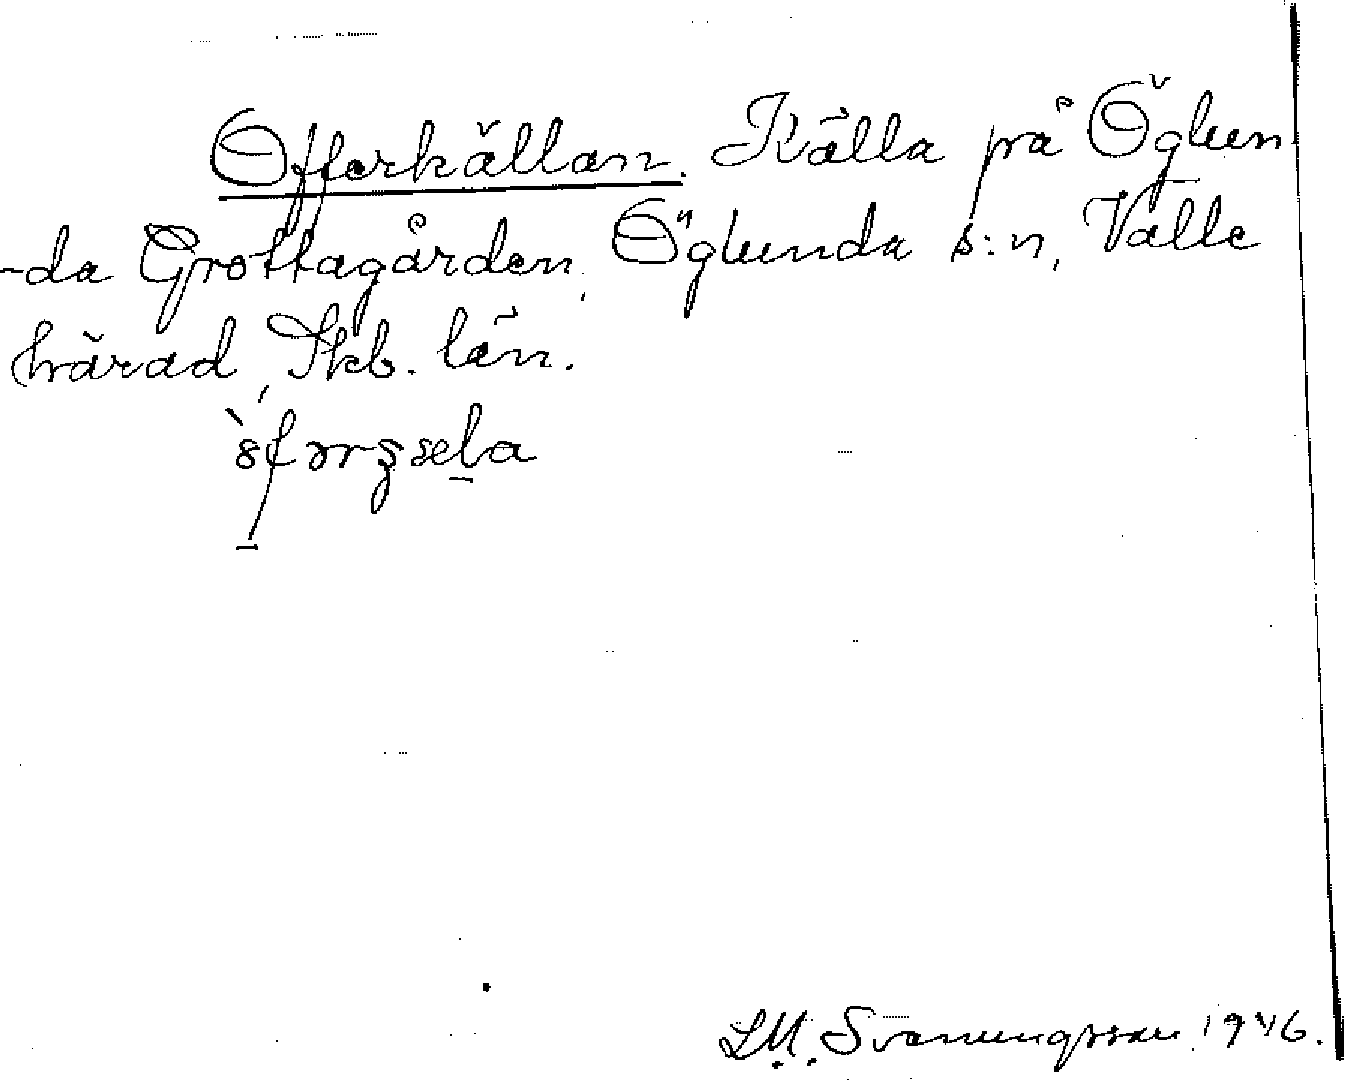 Offerkällan. Källa på Öglun
-da Grottagården, Öglunda s:n, Valle
härad, Skb. län.
L.M. Svenungsson 1946.